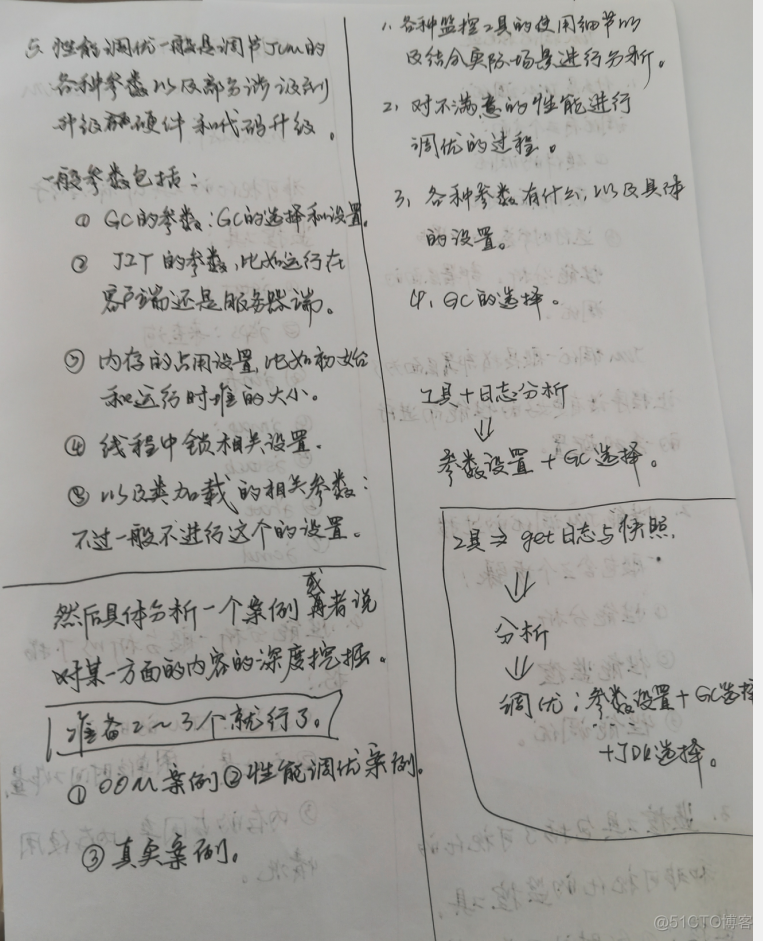 5. 性能调优一般是调节JVM的
各种参数以及部分涉及到
升级硬件和代码升级。
一般参数包括:
① GC的参数:GC的选择和设置。
② JIT的参数,比如运行在
客户端还是服务器端。
③ 内存的占用设置,比如初始
和运行时堆的大小。
④ 线程中锁相关设置.
⑤ 以及类加载的相关参数:
不过一般不进行这个的设置。
然后具体分析一个案例或者说
对某一方面的内容的深度挖掘。
准备2~3个就行了。
① OOM案例②性能调优案例。
③真实案例。
1. 各种监控工具的使用细节以
及结合实际场景进行分析。
2. 对不满意的性能进行
调优的过程。
3. 各种参数有什么,以及具体
的设置。
4. GC的选择。
工具+日志分析
⇓
参数设置+GC选择。
工具⇒get日志与快照.
⇓
分析
⇓
调优:参数设置+GC选择
+JDK选择。
@51CTO博客